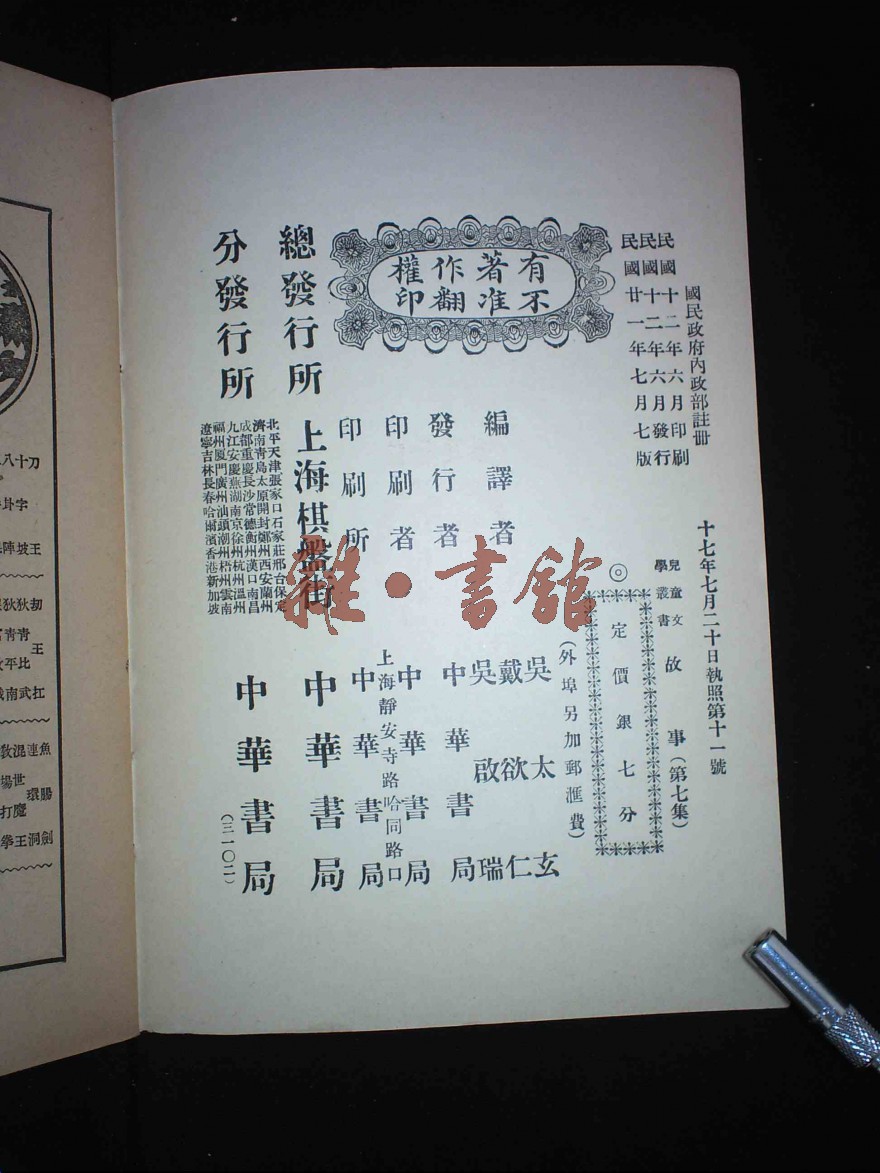 國民政府內政部註冊
十七年七月二十日執照第十一號
民國十二年六月印刷
民國十二年六月發行
民國廿一年七月七版
兒童文學叢書
故事(第七集)
◎定價銀七分
(外埠另加郵滙費)
有著作權
不准翻印
編譯者
吳太玄
戴欲仁
吳啟瑞
發行者
中華書局
印刷者
中華書局
印刷所
上海靜安寺路哈同路口
中華書局
總發行所
上海棋盤街
中華書局
分發行所
北平天津張家口石家莊邢台保定
濟南青島太原開封鄭州西安蘭州
成都重慶長沙常德衡州漢口南昌
九江安慶蕪湖南京徐州杭州溫州
福州厦門廣州汕頭潮州梧州雲南
遼寧吉林長春哈爾濱香港新加坡
中華書局
(三一〇二)
雜·書館
八十刀
卦字
坡陣王
狄狄刼
青青
王
平比
南武扛
敦混連魚
場世
環腸
打魔
拳王洞劍